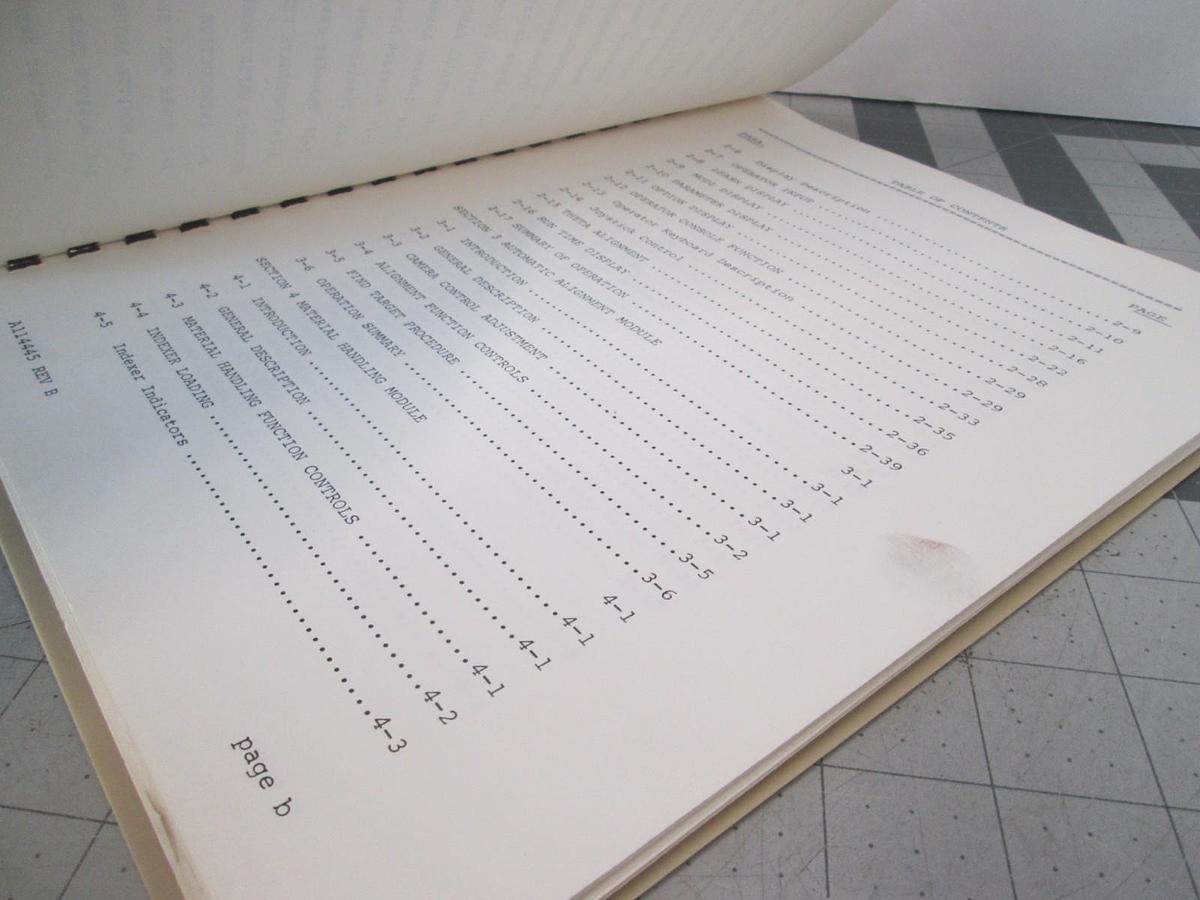 TABLE OF CONTENTS
PARA. PAGE
2-6 Display Description ........ 2-9
2-7 OPERATOR INPUT ........ 2-10
2-8 LEARN DISPLAY ........ 2-11
2-9 MODE DISPLAY ........ 2-16
2-10 PARAMETER DISPLAY ........ 2-22
2-11 OPTION DISPLAY ........ 2-28
2-12 OPERATOR CONSOLE FUNCTION ........ 2-29
2-13 Operator Keyboard Description ........ 2-29
2-14 Joystick Control ........ 2-33
2-15 THETA ALIGNMENT ........ 2-35
2-16 RUN TIME DISPLAY ........ 2-36
2-17 SUMMARY OF OPERATION ........ 2-39
SECTION 3 AUTOMATIC ALIGNMENT MODULE 3-1
3-1 INTRODUCTION ........ 3-1
3-2 GENERAL DESCRIPTION ........ 3-1
3-3 CAMERA CONTROL ADJUSTMENT ........ 3-1
3-4 ALIGNMENT FUNCTION CONTROLS ........ 3-2
3-5 FIND TARGET PROCEDURE ........ 3-5
3-6 OPERATION SUMMARY ........ 3-6
SECTION 4 MATERIAL HANDLING MODULE 4-1
4-1 INTRODUCTION ........ 4-1
4-2 GENERAL DESCRIPTION ........ 4-1
4-3 MATERIAL HANDLING FUNCTION CONTROLS ........ 4-1
4-4 INDEXER LOADING ........ 4-2
4-5 Indexer Indicators ........ 4-3
A114445 REV B page b